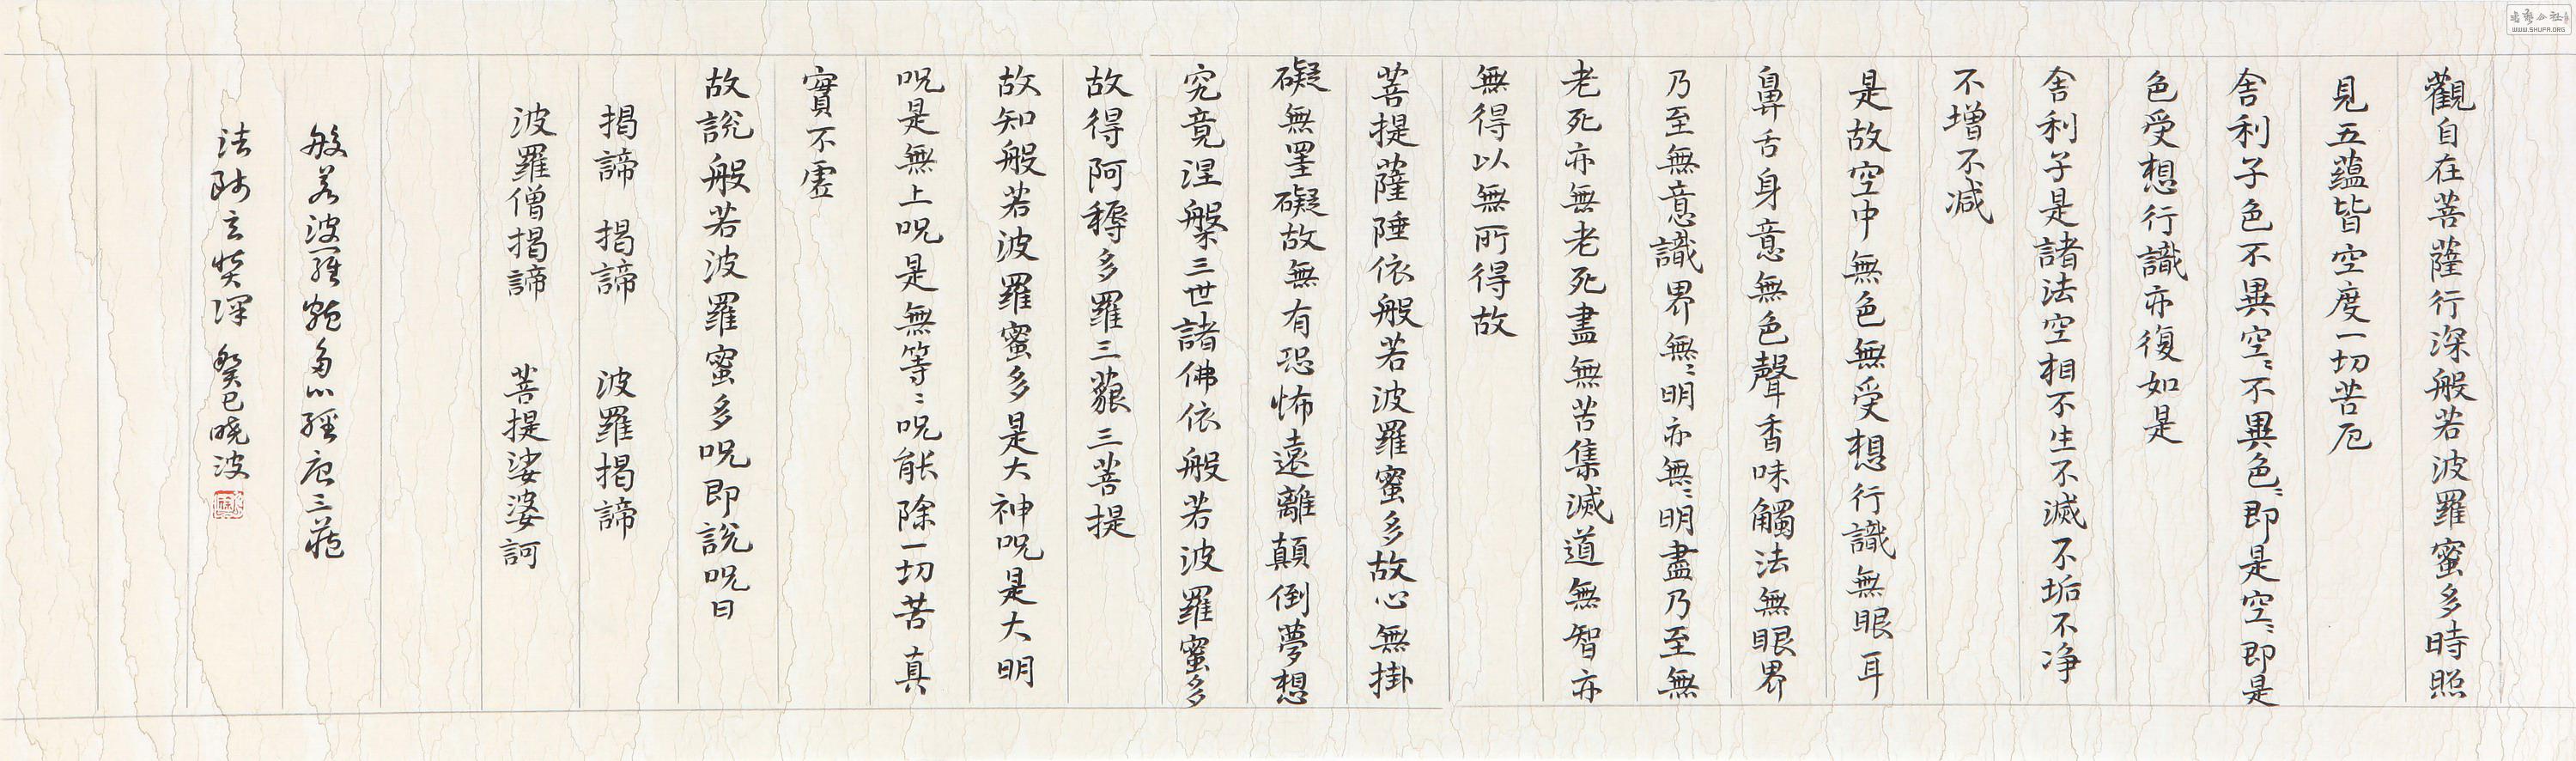 觀自在菩薩行深般若波羅蜜多時照
見五蘊皆空度一切苦厄
舍利子色不異空〻不異色〻即是空〻即是
色受想行識亦復如是
舍利子是諸法空相不生不滅不垢不净
不增不减
是故空中無色無受想行識無眼耳
鼻舌身意無色聲香味觸法無眼界
乃至無意識界無〻明亦無〻明盡乃至無
老死亦無老死盡無苦集滅道無智亦
無得以無所得故
菩提薩埵依般若波羅蜜多故心無掛
礙無罣礙故無有恐怖遠離顛倒夢想
究竟涅槃三世諸佛依般若波羅蜜多
故得阿耨多羅三藐三菩提
故知般若波羅蜜多是大神呪是大明
呪是無上呪是無等〻呪能除一切苦真
實不虛
故說般若波羅蜜多呪即說呪曰
揭諦 揭諦 波羅揭諦
波羅僧揭諦 菩提娑婆訶
般若波羅蜜多心經唐三藏
法師玄奘譯 癸巳曉波
WWW.SHUFA.ORG